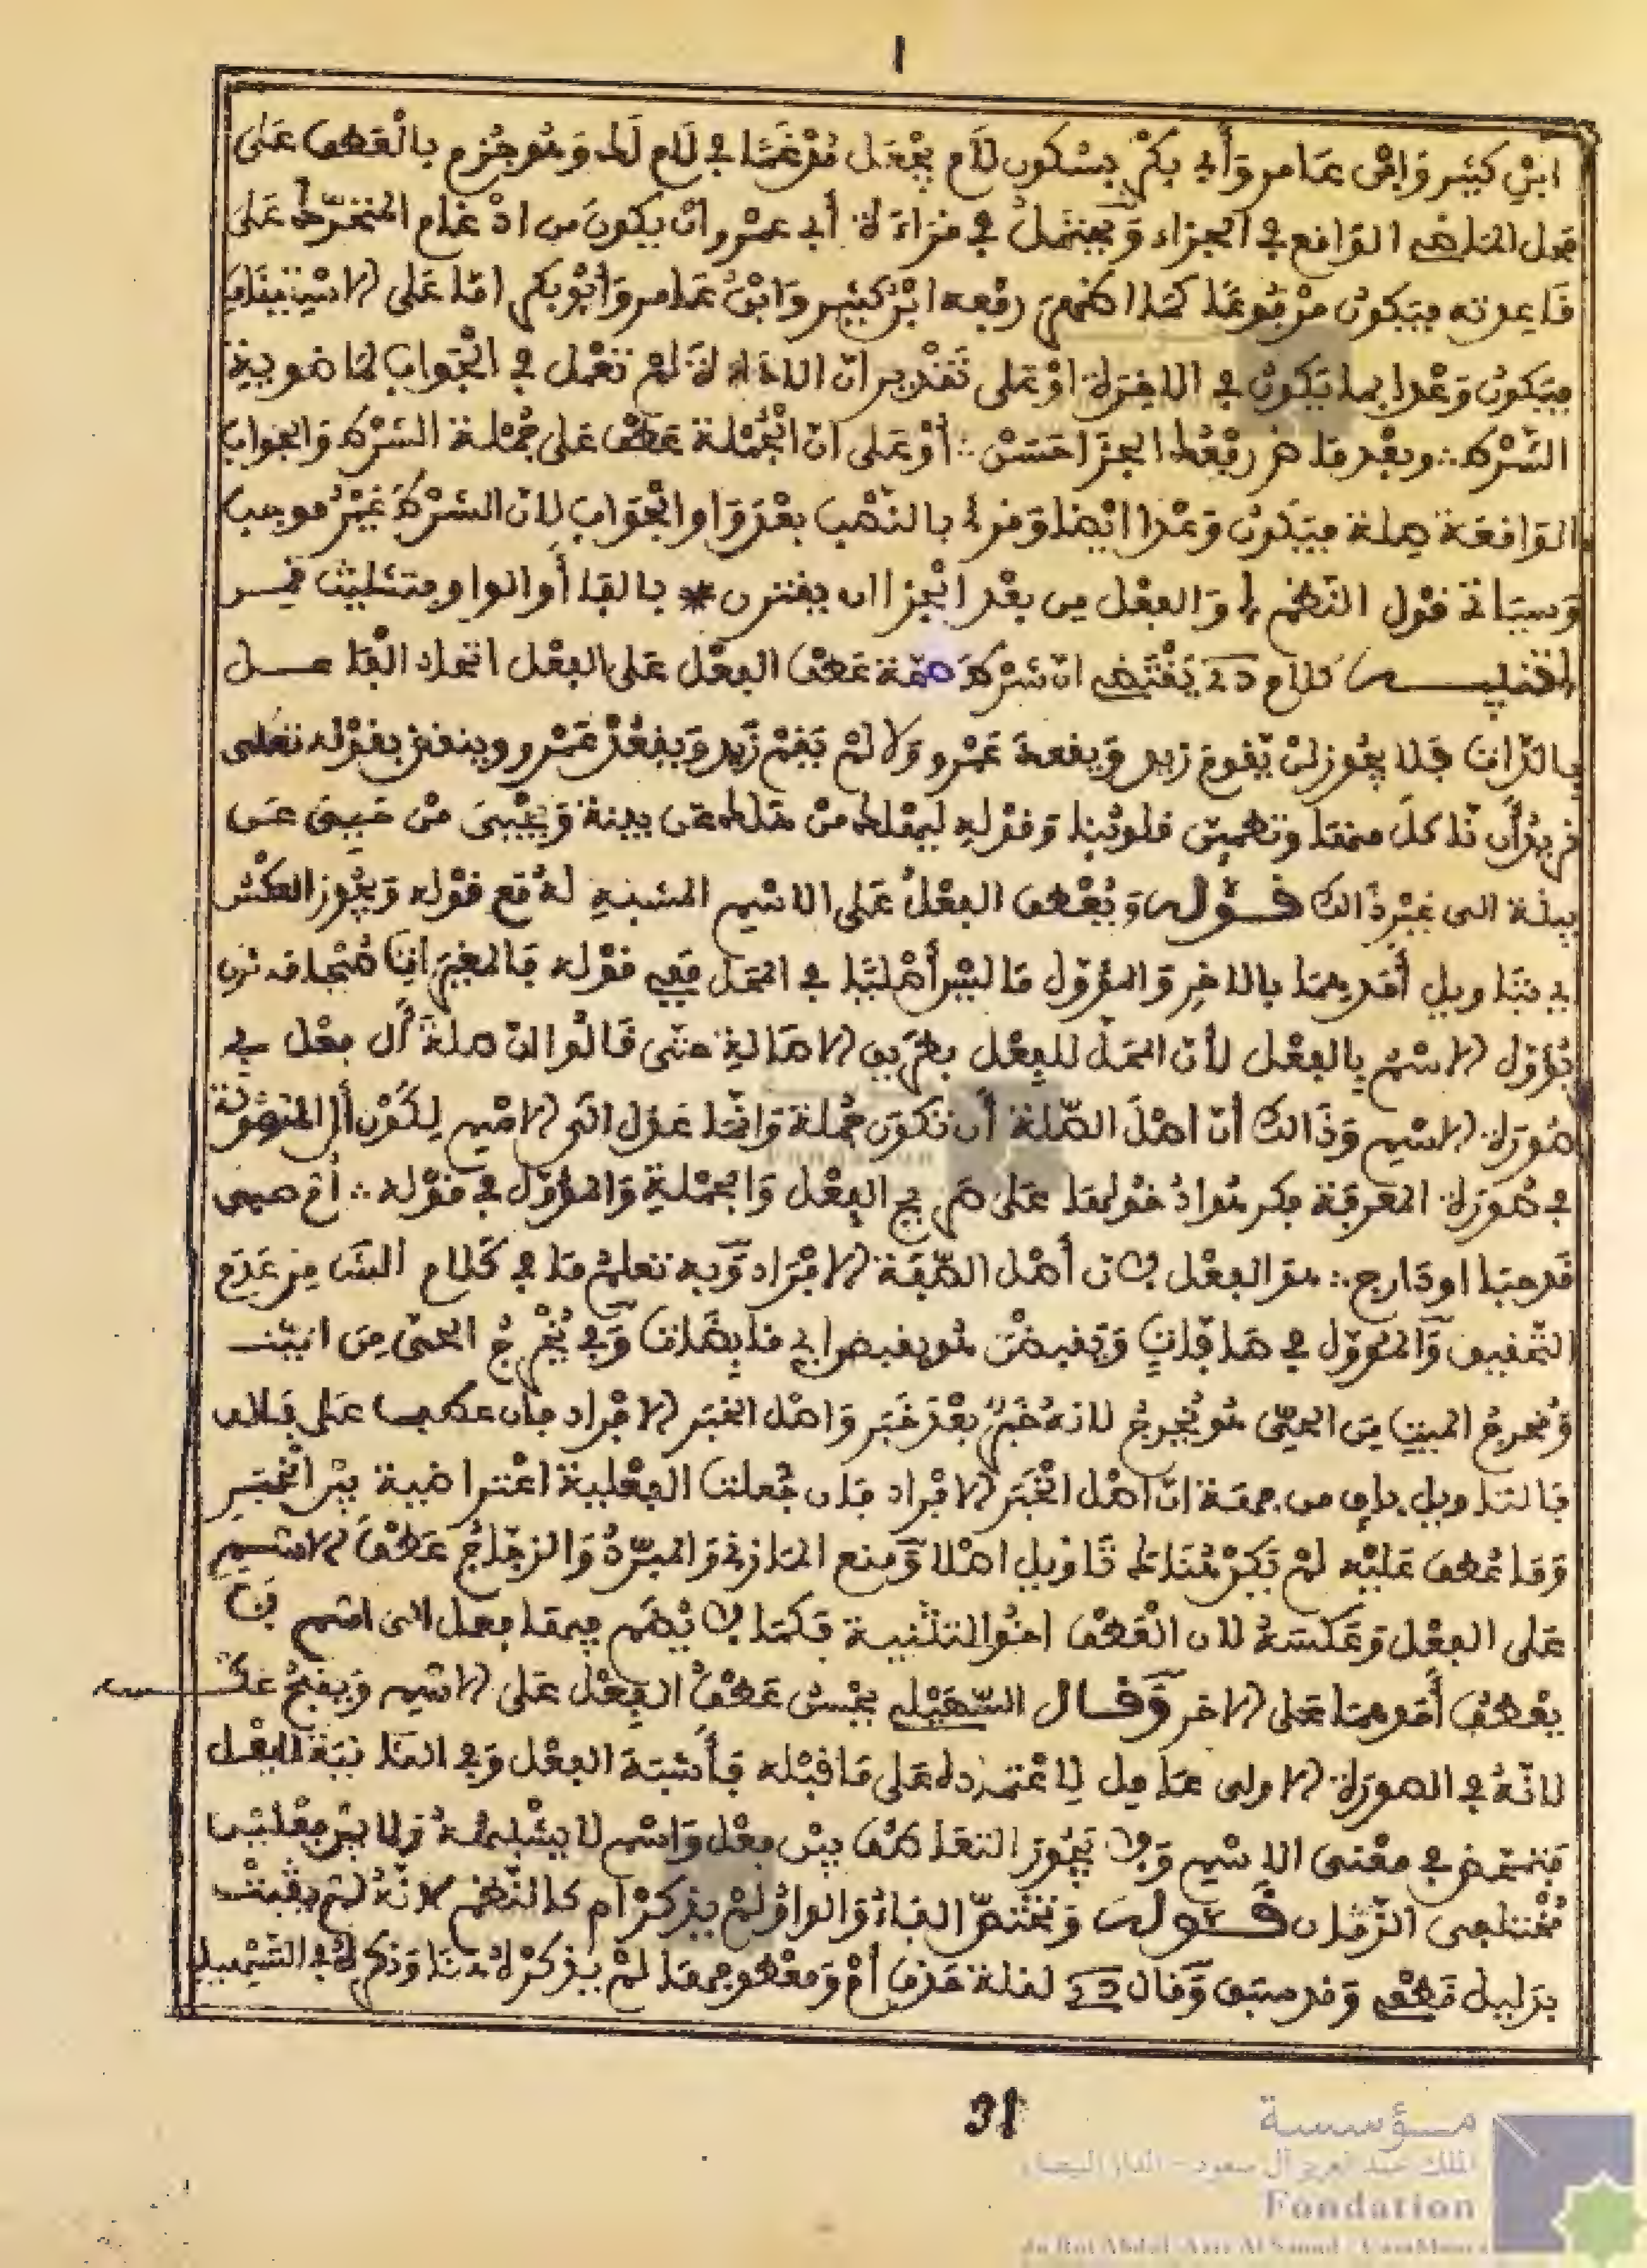 ا
ابن كثير وابن عامر وأبي بكر بسكون لام يجعل مدغما في لام لك وهو جزم بالعطف على
محل الماضي الواقع في الجزاء ويحتمل في قراءة أبي عمرو ان يكون من ادغام المتحرك على
قاعدته فيكون مرفوعا كما رفعه ابن كثير وابن عامر وأبو بكر اما على الاستيناف
فيكون وعدا بما يكون في الاخرة أو على تقدير ان الاداة لم تعمل في الجواب لما هو بينة
الشرط ∴ وبعد ماض رفعك الجزا حسن ∴ أو على ان الجملة عطف على جملة الشرط والجواب
الواقعة صلة فيكون وعدا ايضا وقرئ بالنصب بعد واو الجواب لان الشرط غير موجب
وسياتي قول النظم والفعل من بعد الجزا ان يقترن * بالفا أو الواو بتثليث قمن
كلام يقتضي ان شرط صحة عطف الفعل على الفعل اتحاد الفاعل
بالذات فلا يجوز لن يقوم زيد ويقعد عمرو ولا لم يقم زيد ويقعد عمرو وينقض بقوله تعلى
نريد أن ناكل منها وتطمين قلوبنا وقوله ليهلك من هلك عن بينة ويحيى من حيي عن
بينة الى غير ذالك قوله ويعطف الفعل على الاسم المشبه له مع قوله ويجوز العكس
اي بتاويل أحدهما بالاخر والمؤول ما ليس أصليا في المحل ففي قوله فالمغيرات صبحا فاثرن
يؤول الاسم بالفعل لأن المحل للفعل بطريق الاصالة حتى قالوا ان صلة أل فعل في
صورة الاسم وذالك أن اصل الصلة أن تكون جملة وانما عدل الى الاسم لكون أل
في صورة المعرفة فكرهوا دخولها على صريح الفعل والجملة والمؤول في قوله ∴ أم صبي
قد حبا او دارج ∴ هو الفعل لان أصل الصفة الافراد وبه تعلم ما في كلام من عدم
التحقيق والمؤول في صافات ويقبضن هو يقبضن اي قابضات وفي يخرج الحي من الميت
ومخرج الميت من الحي هو يخرج لانه خبر بعد خبر واصل الخبر الافراد فان عطف على فالق
فالتاويل باق من جهة ان اصل الخبر الافراد فان جعلت الفعلية اعتراضية بين الخبر
وما عطف عليه لم يكن هناك تاويل اصلا ومنع المازني والمبرد والزجاج عطف الاسم
على الفعل وعكسه لان العطف اخو التثنية فكما لا يضم فيها فعل الى اسم لا
يعطف أحدهما على الاخر وقال السهيلي يحسن عطف الفعل على الاسم ويقبح عكسه
لانه في الصورة الاولى عامل لاعتماده على ما قبله فأشبه الفعل وفي الثانية للفعل
فتمحض في معنى الاسم ولا يجوز التعاطف بين فعل واسم لا يشبهه ولا بين فعلين
مختلفي الزمان قوله وتختص الفاء والواو لم يذكر أم كالنظم لانه لم يثبت
بدليل قطعي وقد سبق وقال لقلة حذف أم ومعطوفها لم يذكره هنا وذكره في التسهيل
31
مؤسسة
الملك عبد العزيز آل سعود - الدار البيضاء
Fondation
du Roi Abdul-Aziz Al Saoud - Casablanca